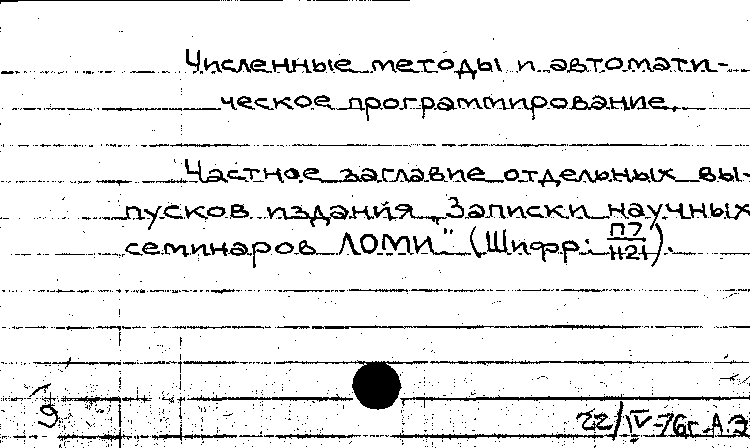 Численные методы и автомати-
ческое программирование.
Частное заглавие отдельных вы-
пусков издания „Записки научных
семинаров ЛОМИ" (Шифр: П7/Н21).
9
22/IV-76г. А.З